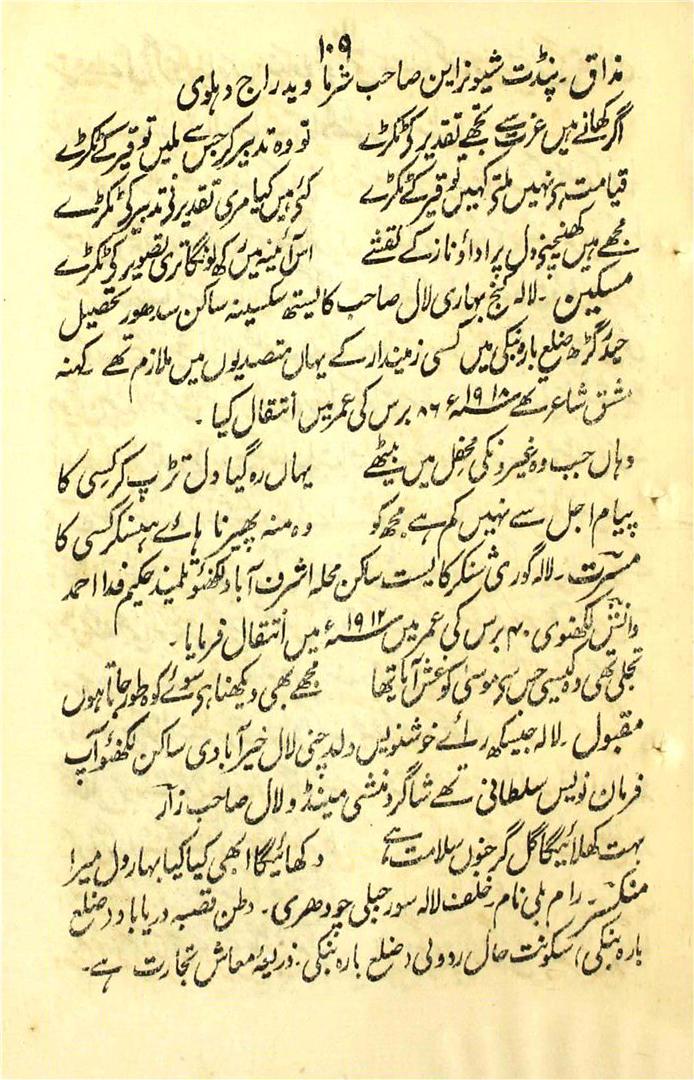 ۱۰۹
مذاق۔ پنڈت شیونراین صاحب شرما ویدراج دہلوی
اگر کھانے ہیں عزت سے تجھے تقدیر کے ٹکڑے تو وہ تدبیر کر جس سے ملیں توقیر کے ٹکڑے
قیامت ہے نہیں ملتے کہیں توقیر کے ٹکڑے کئے ہیں کیا مری تقدیر نے تدبیر کے ٹکڑے
مجھے ہیں کھینچنے دل پر ادا و ناز کے نقشے اس آئینہ میں رکھ لونگا تری تصویر کے ٹکڑے
مسکین۔ لالہ گنج بہاری لال صاحب کایستھ سکسینہ ساکن سدھور تحصیل
حیدرگڑھ ضلع بارہ بنکی میں کسی زمیندار کے یہاں متصدیوں میں ملازم تھے کہنہ
مشق شاعر تھے ۱۹۱۸ء ۸۶ برس کی عمر میں انتقال کیا۔
وہاں جب وہ غیرونکی محفل میں بیٹھے یہاں رہ گیا دل تڑپ کر کسی کا
پیام اجل سے نہیں کم ہے مجھ کو وہ منہ پھیرنا ہائے ہنسکر کسی کا
مسرت۔ لالہ گوری شنکر کایست ساکن محلہ اشرف آباد لکھنؤ تلمیذ حکیم فدا احمد
دانش لکھنوی ۴۰ برس کی عمر میں ۱۹۱۲ء میں انتقال فرمایا۔
تجلی تھی وہ کیسی جس سے موسیٰ کو غش آیا تھا مجھے بھی دیکھنا ہے سوئے کوہ طور جاتا ہوں
مقبول۔ لالہ جیسکھ رائے خوشنویس ولد چنی لال خیرآبادی ساکن لکھنؤ آپ
فرمان نویس سلطانی تھے شاگرد منشی مینڈو لال صاحب زار
بہت کھلائیگا گل گر جنوں سلامت ہے دکھائیگا ابھی کیا کیا بہار دل میرا
منکسر۔ رام بلی نام۔ خلف لالہ سورجبلی چودھری۔ وطن قصبہ دریاباد (ضلع
بارہ بنکی) سکونت حال ردولی (ضلع بارہ بنکی۔ ذریعۂ معاش تجارت ہے۔